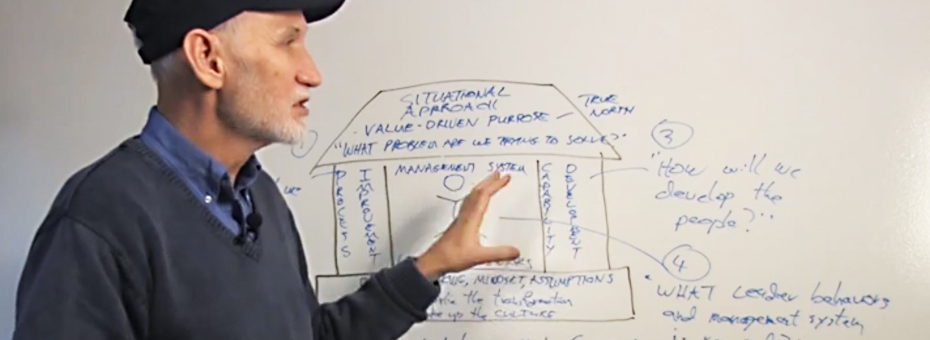 SITUATIONAL
APPROACH
- VALUE-DRIVEN PURPOSE -
TRUE
NORTH
"WHAT PROBLEM ARE WE TRYING TO SOLVE?"
PROCESS
IMPROVEMENT
MANAGEMENT SYSTEM
CAPABILITY
DEVELOPMENT
3
"How will we
develop the
people?"
4
MINDSET, ASSUMPTIONS
the transformation
up the CULTURE
"WHAT Leader behaviors
and management system